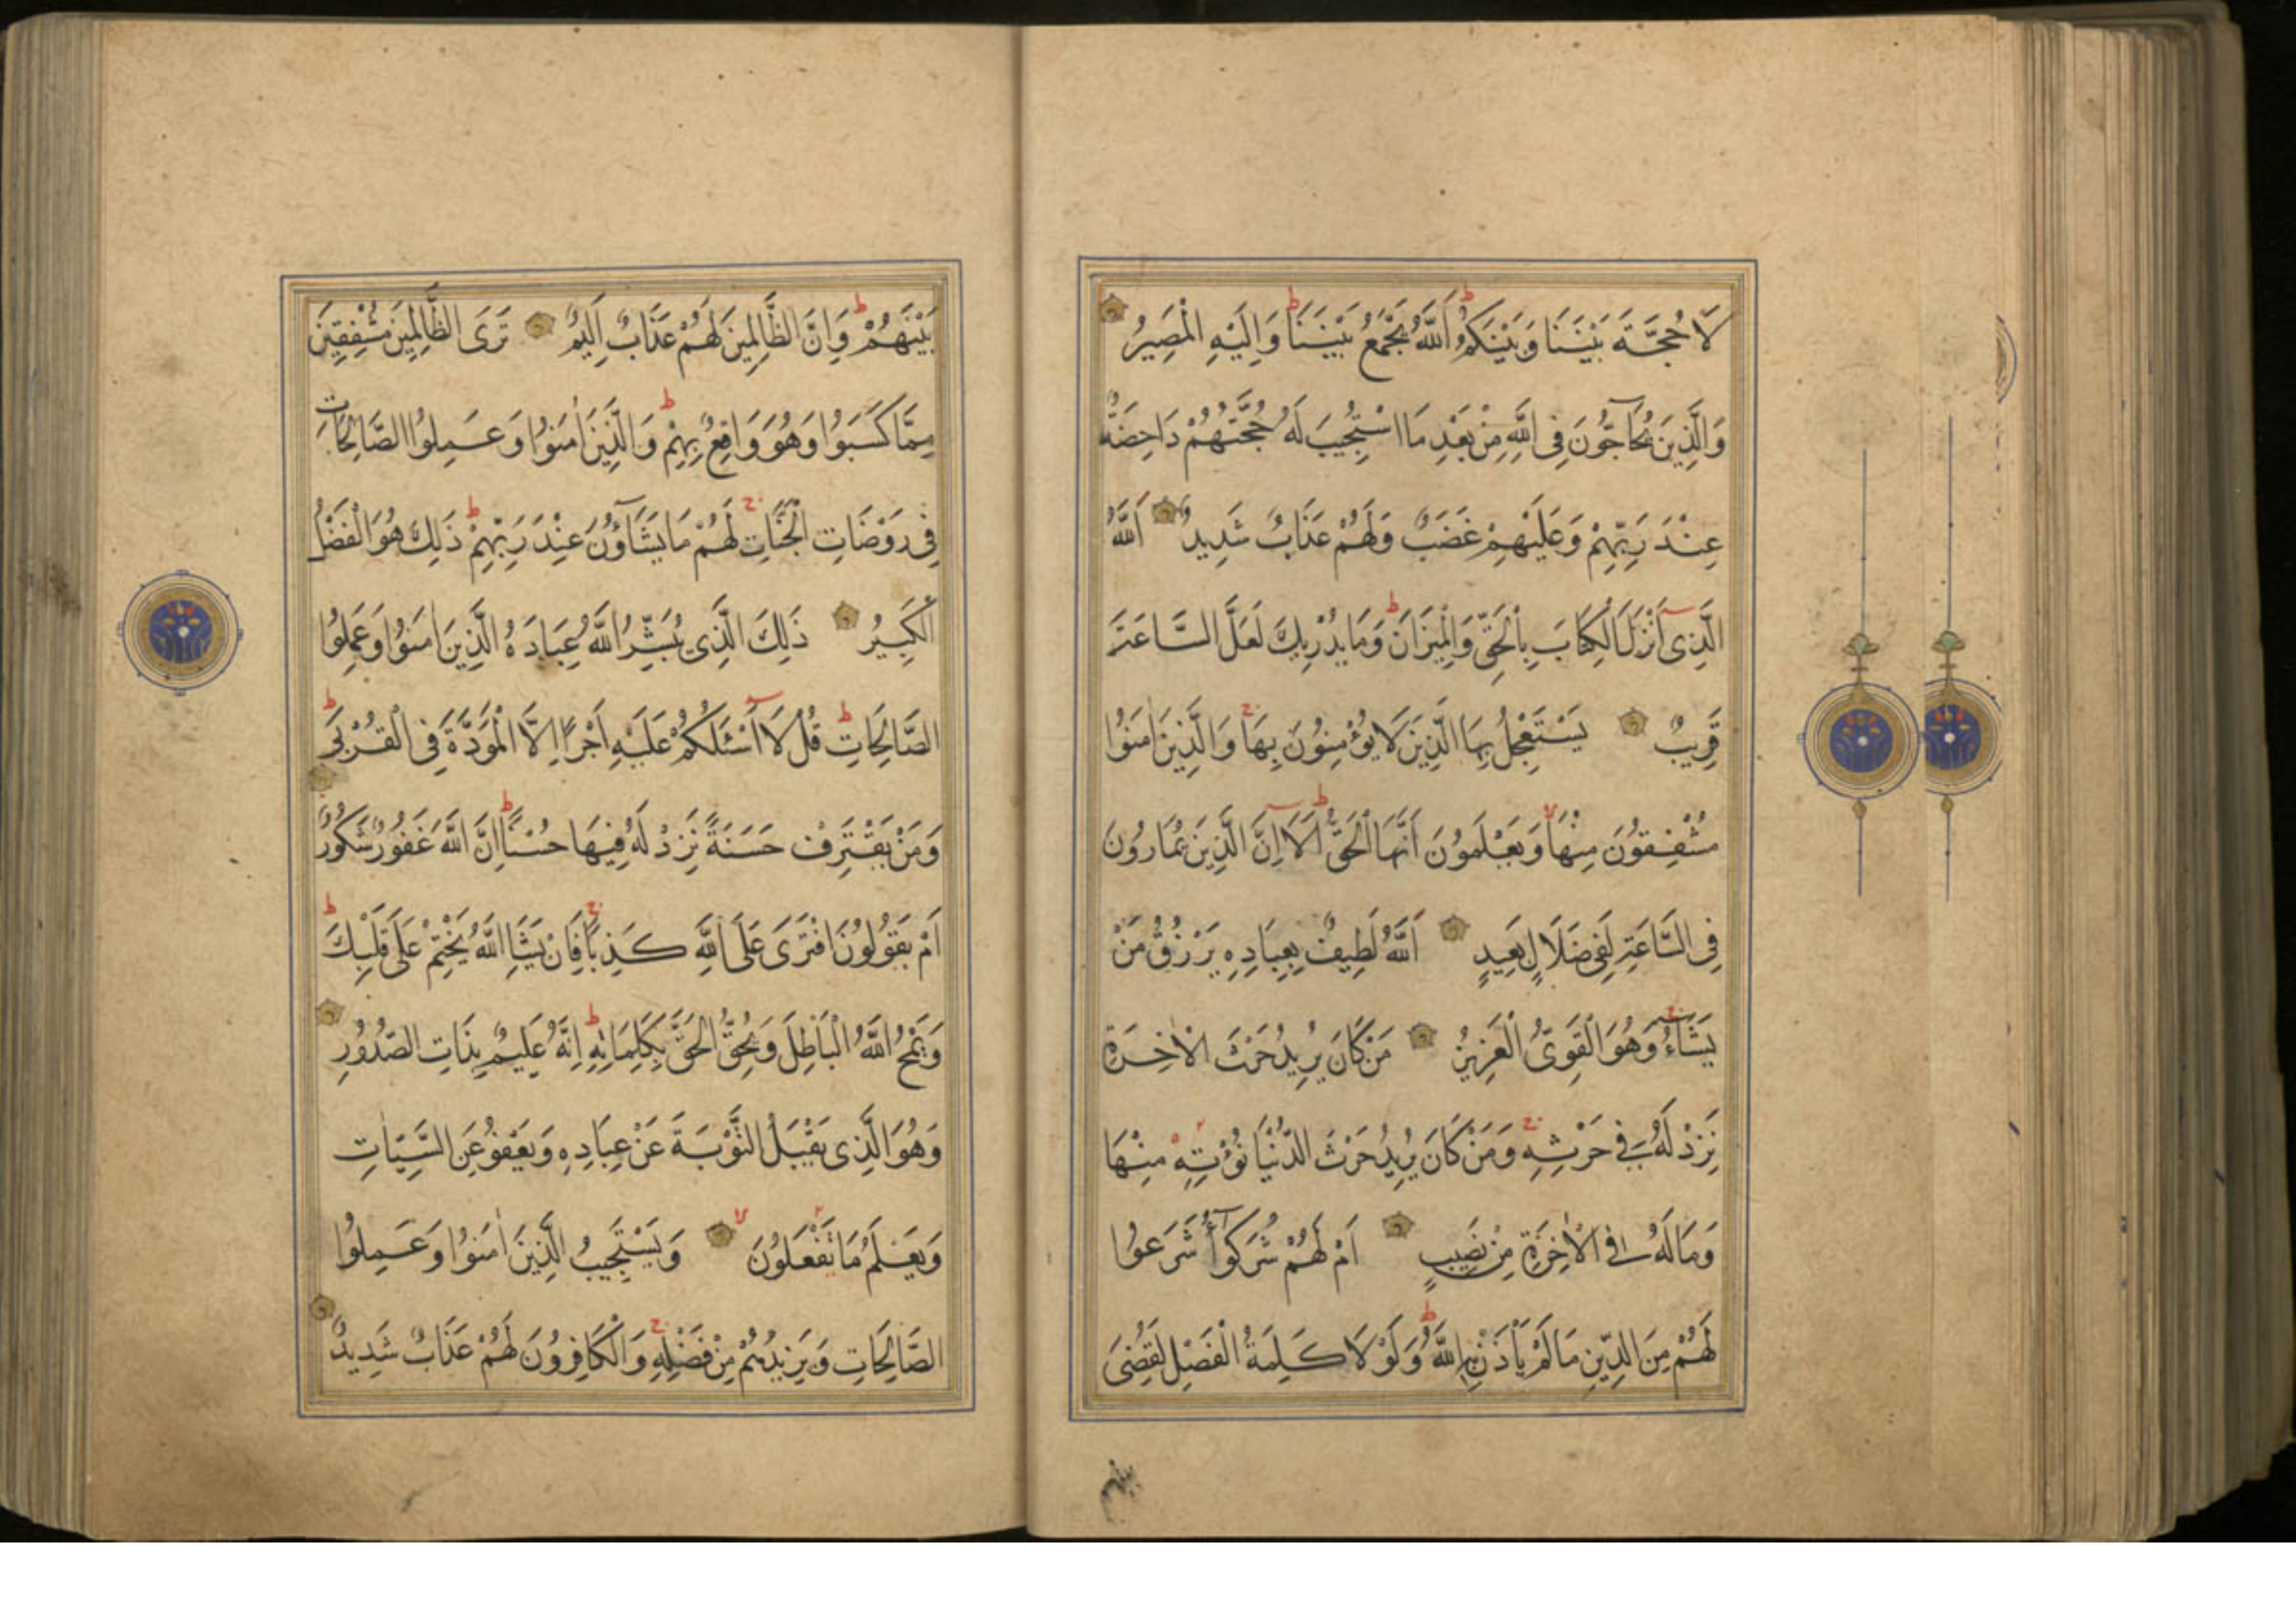 لَا حُجَّةَ بَيْنَنَا وَبَيْنَكُمُ اَللّٰهُ يَجْمَعُ بَيْنَنَا وَاِلَيْهِ الْمَصِيرُ
وَالَّذِينَ يُحَاجُّونَ فِى اللّٰهِ مِنْ بَعْدِ مَا اسْتُجِيبَ لَهُ حُجَّتُهُمْ دَاحِضَةٌ
عِنْدَ رَبِّهِمْ وَعَلَيْهِمْ غَضَبٌ وَلَهُمْ عَذَابٌ شَدِيدٌ اَللّٰهُ
الَّذِى اَنْزَلَ الْكِتَابَ بِالْحَقِّ وَالْمِيزَانَ وَمَا يُدْرِيكَ لَعَلَّ السَّاعَةَ
قَرِيبٌ يَسْتَعْجِلُ بِهَا الَّذِينَ لَا يُؤْمِنُونَ بِهَا وَالَّذِينَ اٰمَنُوا
مُشْفِقُونَ مِنْهَا وَيَعْلَمُونَ اَنَّهَا الْحَقُّ اَلَا اِنَّ الَّذِينَ يُمَارُونَ
فِى السَّاعَةِ لَفِى ضَلَالٍ بَعِيدٍ اَللّٰهُ لَطِيفٌ بِعِبَادِهِ يَرْزُقُ مَنْ
يَشَاءُ وَهُوَ الْقَوِىُّ الْعَزِيزُ مَنْ كَانَ يُرِيدُ حَرْثَ الْاٰخِرَةِ
نَزِدْ لَهُ فِى حَرْثِهِ وَمَنْ كَانَ يُرِيدُ حَرْثَ الدُّنْيَا نُؤْتِهِ مِنْهَا
وَمَا لَهُ فِى الْاٰخِرَةِ مِنْ نَصِيبٍ اَمْ لَهُمْ شُرَكٰٓؤُا شَرَعُوا
لَهُمْ مِنَ الدِّينِ مَا لَمْ يَأْذَنْ بِهِ اللّٰهُ وَلَوْ لَا كَلِمَةُ الْفَصْلِ لَقُضِىَ
بينهم
بَيْنَهُمْ وَاِنَّ الظَّالِمِينَ لَهُمْ عَذَابٌ اَلِيمٌ تَرَى الظَّالِمِينَ مُشْفِقِينَ
مِمَّا كَسَبُوا وَهُوَ وَاقِعٌ بِهِمْ وَالَّذِينَ اٰمَنُوا وَعَمِلُوا الصَّالِحَاتِ
فِى رَوْضَاتِ الْجَنَّاتِ لَهُمْ مَا يَشَاؤُنَ عِنْدَ رَبِّهِمْ ذٰلِكَ هُوَ الْفَضْلُ
الْكَبِيرُ ذٰلِكَ الَّذِى يُبَشِّرُ اللّٰهُ عِبَادَهُ الَّذِينَ اٰمَنُوا وَعَمِلُوا
الصَّالِحَاتِ قُلْ لَا اَسْئَلُكُمْ عَلَيْهِ اَجْرًا اِلَّا الْمَوَدَّةَ فِى الْقُرْبٰى
وَمَنْ يَقْتَرِفْ حَسَنَةً نَزِدْ لَهُ فِيهَا حُسْنًا اِنَّ اللّٰهَ غَفُورٌ شَكُورٌ
اَمْ يَقُولُونَ افْتَرٰى عَلَى اللّٰهِ كَذِبًا فَاِنْ يَشَاِ اللّٰهُ يَخْتِمْ عَلٰى قَلْبِكَ
وَيَمْحُ اللّٰهُ الْبَاطِلَ وَيُحِقُّ الْحَقَّ بِكَلِمَاتِهِ اِنَّهُ عَلِيمٌ بِذَاتِ الصُّدُورِ
وَهُوَ الَّذِى يَقْبَلُ التَّوْبَةَ عَنْ عِبَادِهِ وَيَعْفُو عَنِ السَّيِّاٰتِ
وَيَعْلَمُ مَا تَفْعَلُونَ وَيَسْتَجِيبُ الَّذِينَ اٰمَنُوا وَعَمِلُوا
الصَّالِحَاتِ وَيَزِيدُهُمْ مِنْ فَضْلِهِ وَالْكَافِرُونَ لَهُمْ عَذَابٌ شَدِيدٌ